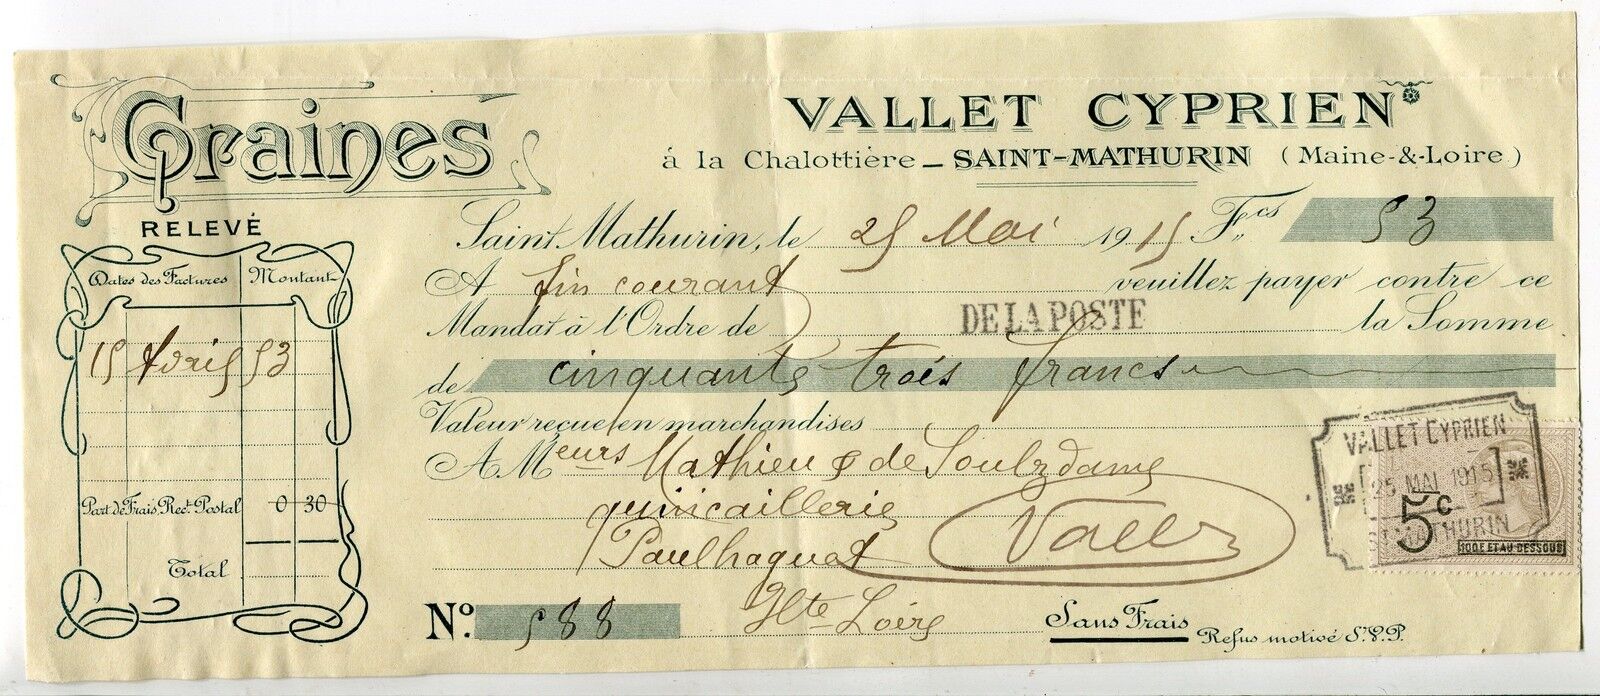 Graines
RELEVÉ
Dates des Factures Montant
15 Avril 53
Part de Frais, Rect. Postal 0 30
Total
VALLET CYPRIEN
à la Chalottière - SAINT-MATHURIN (Maine-&-Loire)
Saint-Mathurin, le 25 Mai 1915 Fcs 53
A fin courant veuillez payer contre ce
Mandat à l'Ordre de DE LA POSTE la Somme
de cinquante trois francs
Valeur reçue en marchandises
A Meurs Mathieu & de
quincaillerie
Paulhaguet
Hte Loire
No. 588
Sans Frais
Refus motivé S.V.P.
VALLET CYPRIEN
25 MAI 1915
ST MATHURIN
5c
100F ET AU DESSOUS